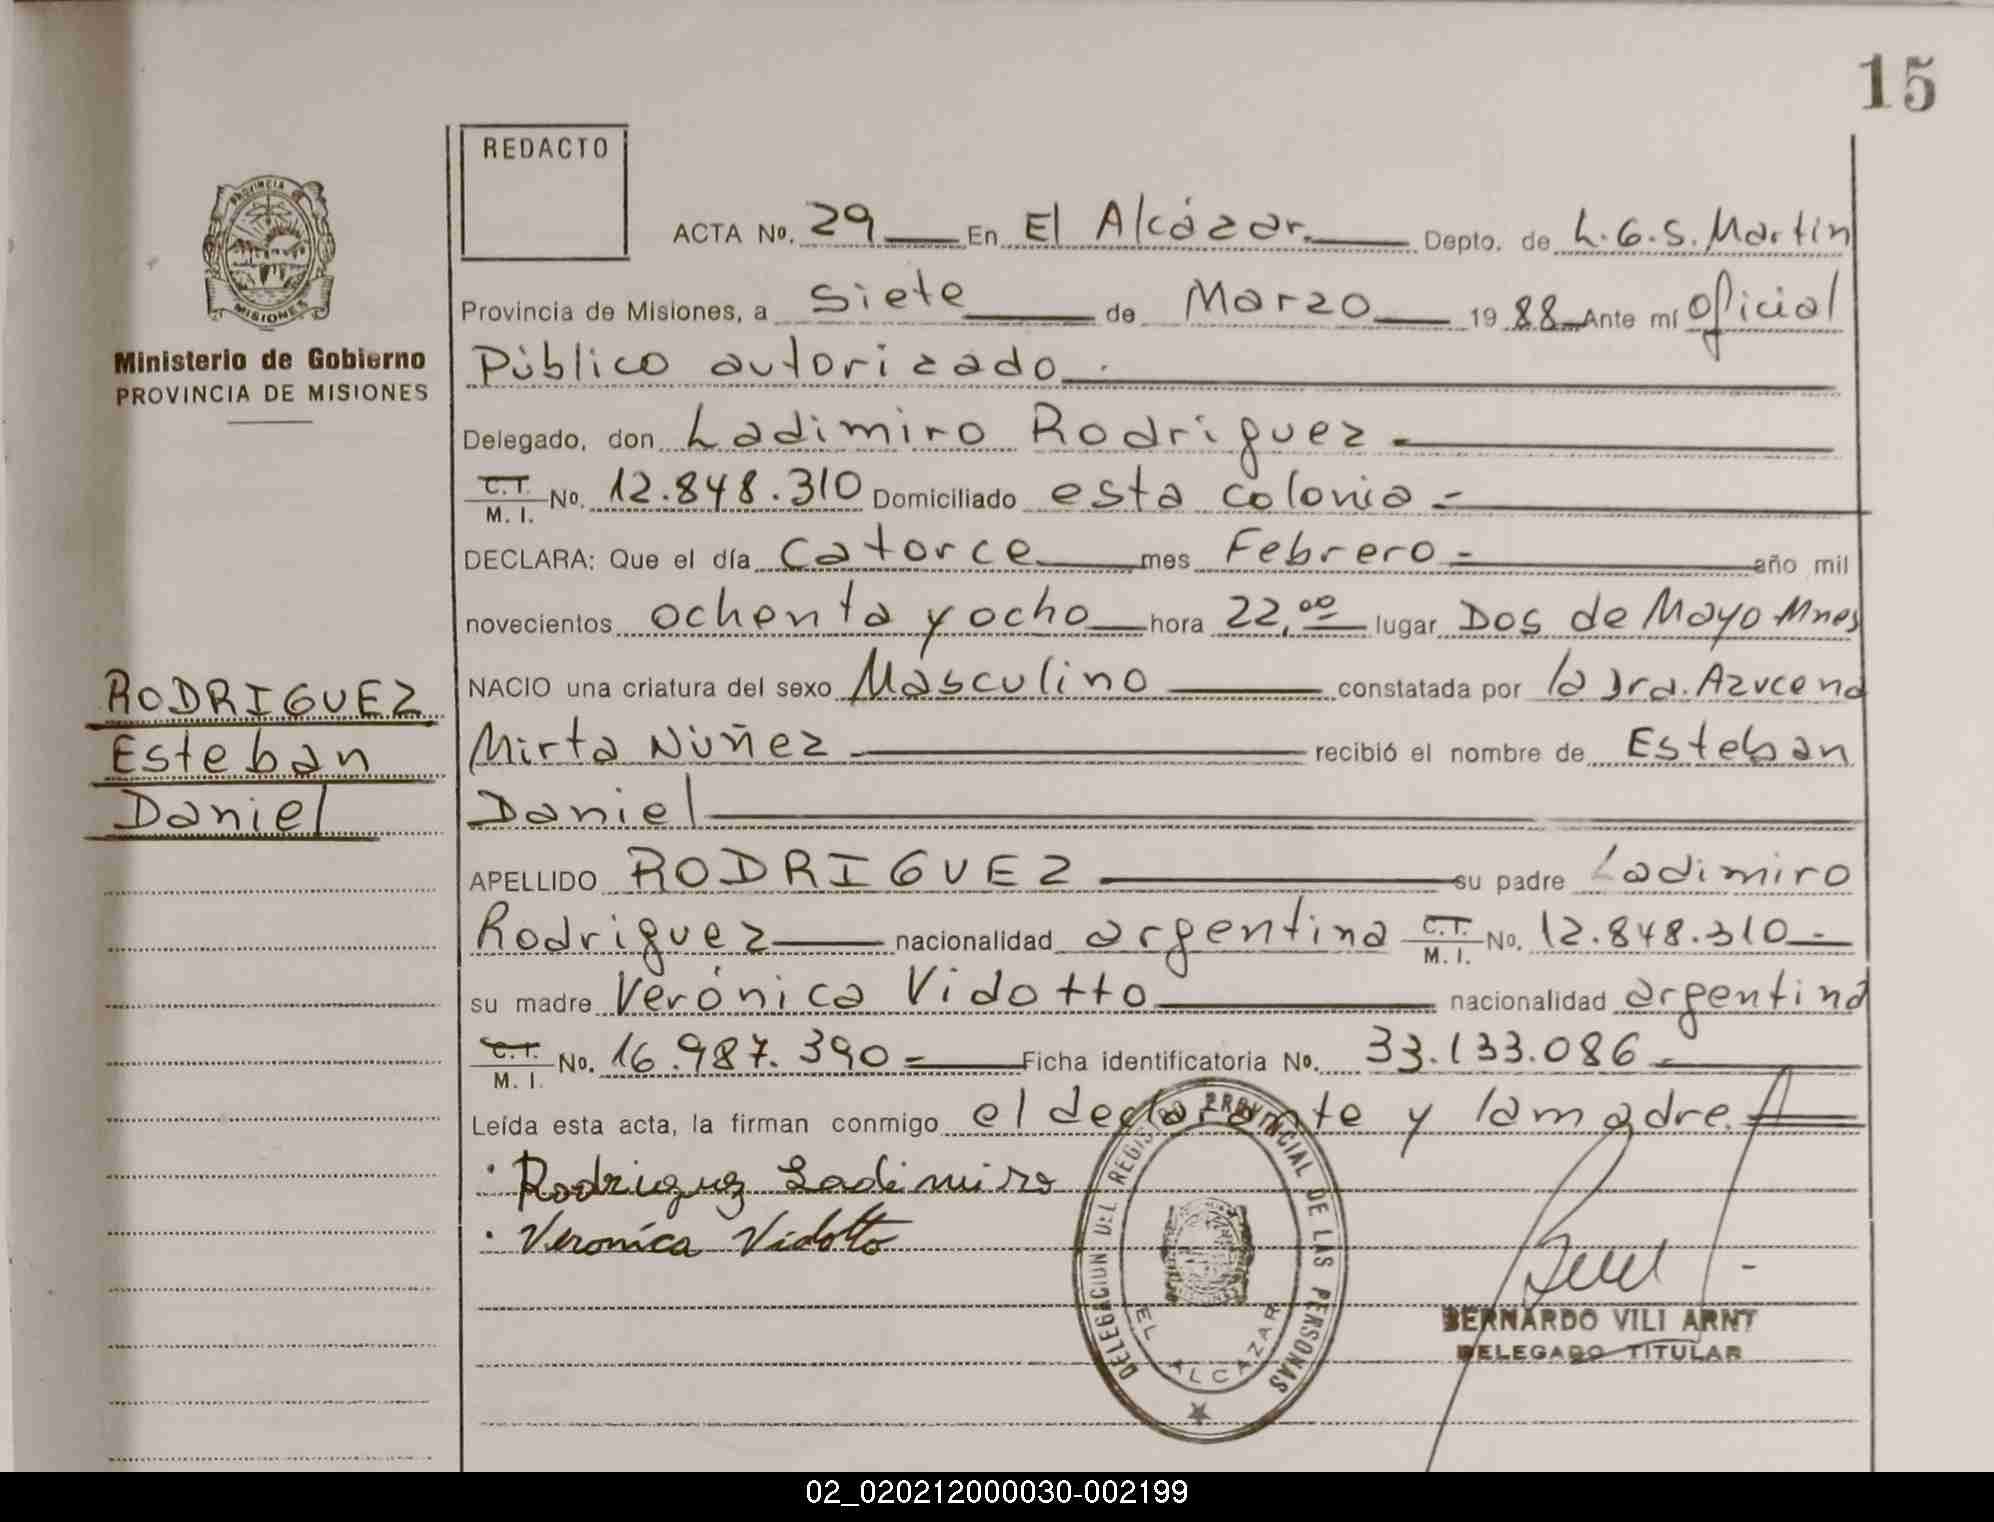 15
REDACTO
PROVINCIA
MISIONES
Ministerio de Gobierno
PROVINCIA DE MISIONES
ACTA No. 29 En El Alcázar. Depto. de L.G.S. Martin
Provincia de Misiones, a Siete de Marzo 1988 Ante mí Oficial
Público autorizado.
Delegado, don Ladimiro Rodriguez
C.T. M. I. No. 12.848.310 Domiciliado esta colonia -
DECLARA: Que el día Catorce mes Febrero - año mil
novecientos ochenta y ocho hora 22,00 lugar Dos de Mayo Mnes
NACIO una criatura del sexo Masculino constatada por la Dra. Azucena
Mirta Núñez recibió el nombre de Esteban
Daniel
RODRIGUEZ
Esteban
Daniel
APELLIDO RODRIGUEZ su padre Ladimiro
Rodriguez nacionalidad argentina C.T. M. I. No. 12.848.310 -
su madre Verónica Vidotto nacionalidad argentina
C.T. M. I. No. 16.987.390 = Ficha identificatoria No. 33.133.086 -
Leída esta acta, la firman conmigo el declarante y la madre.
Rodriguez Ladimiro
Veronica Vidotto
DELEGACION DEL REGISTRO PROVINCIAL DE LAS PERSONAS
EL ALCAZAR
BERNARDO VILI ARNT
DELEGADO TITULAR
02_020212000030-002199